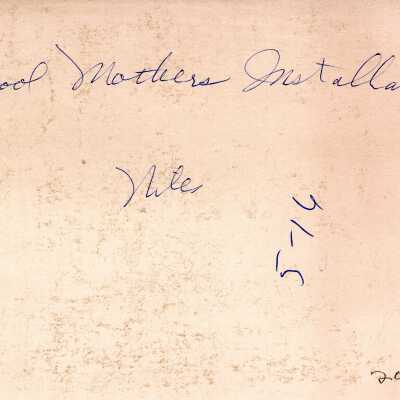 ool Mothers Installa
Niles
5-16